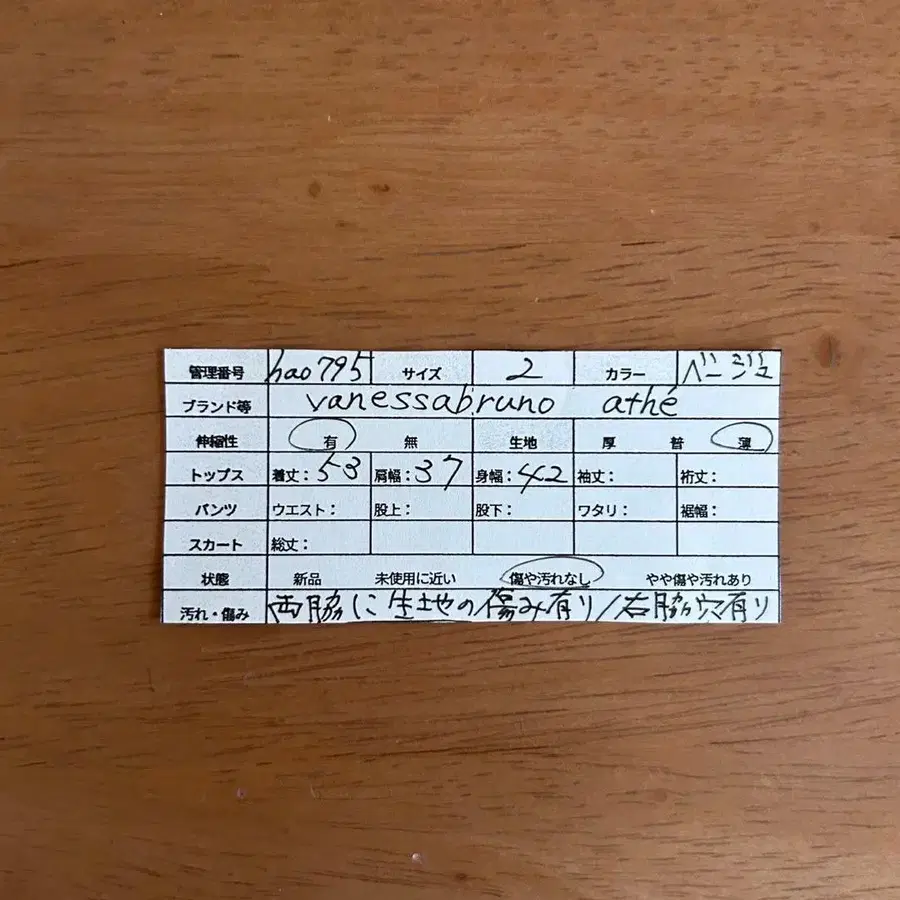 管理番号 hao795 サイズ 2 カラー ベージュ
ブランド等 vanessabruno athé
伸縮性 有 無 生地 厚 普 薄
トップス 着丈：53 肩幅：37 身幅：42 袖丈： 裄丈：
パンツ ウエスト： 股上： 股下： ワタリ： 裾幅：
スカート 総丈：
状態 新品 未使用に近い 傷や汚れなし やや傷や汚れあり
汚れ・傷み 両脇に生地の傷み有り/右脇穴有り